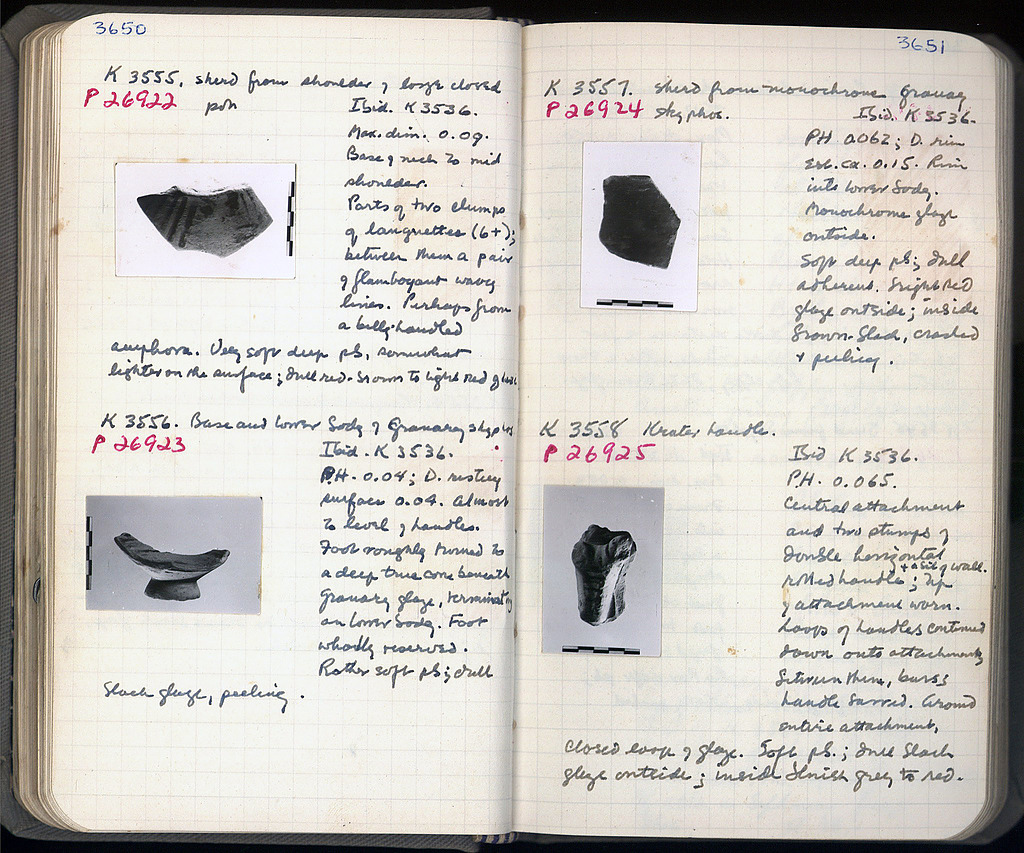 3650
K 3555. Sherd from shoulder of large closed
P 26922 pot.
Ibid. K 3536.
Max. dim. 0.09.
Base of neck to mid
shoulder.
Parts of two clumps
of languettes (6+);
between them a pair
of flamboyant wavy
lines. Perhaps from
a belly-handled
amphora. Very soft deep pb, somewhat
lighter on the surface; dull red-brown to light red glaze.
K 3556. Base and lower body of Granary skyphos
P 26923
Ibid. K 3536.
P.H. 0.04; D. resting
surface 0.04. Almost
to level of handles.
Foot roughly turned to
a deep true cone beneath
Granary glaze, terminating
on lower body. Foot
wholly reserved.
Rather soft pb; dull
black glaze, peeling.
3651
K 3557. Sherd from monochrome Granary
P 26924 skyphos.
Ibid. K 3536.
PH 0.062; D. rim
est. ca. 0.15. Rim
into lower body.
Monochrome glaze
outside.
Soft deep pb; dull
adherent. bright red
glaze outside; inside
brown-black, cracked
+ peeling.
K 3558 Krater handle.
P 26925
Ibid K 3536.
PH. 0.065.
Central attachment
and two stumps of
double horizontal
+ a bit of wall.
rolled handle; tip
of attachment worn.
Loops of handles continued
down onto attachment,
between them, bars;
handle barred. Around
entire attachment,
closed loop of glaze. Soft pb.; dull black
glaze outside; inside bluish grey to red.